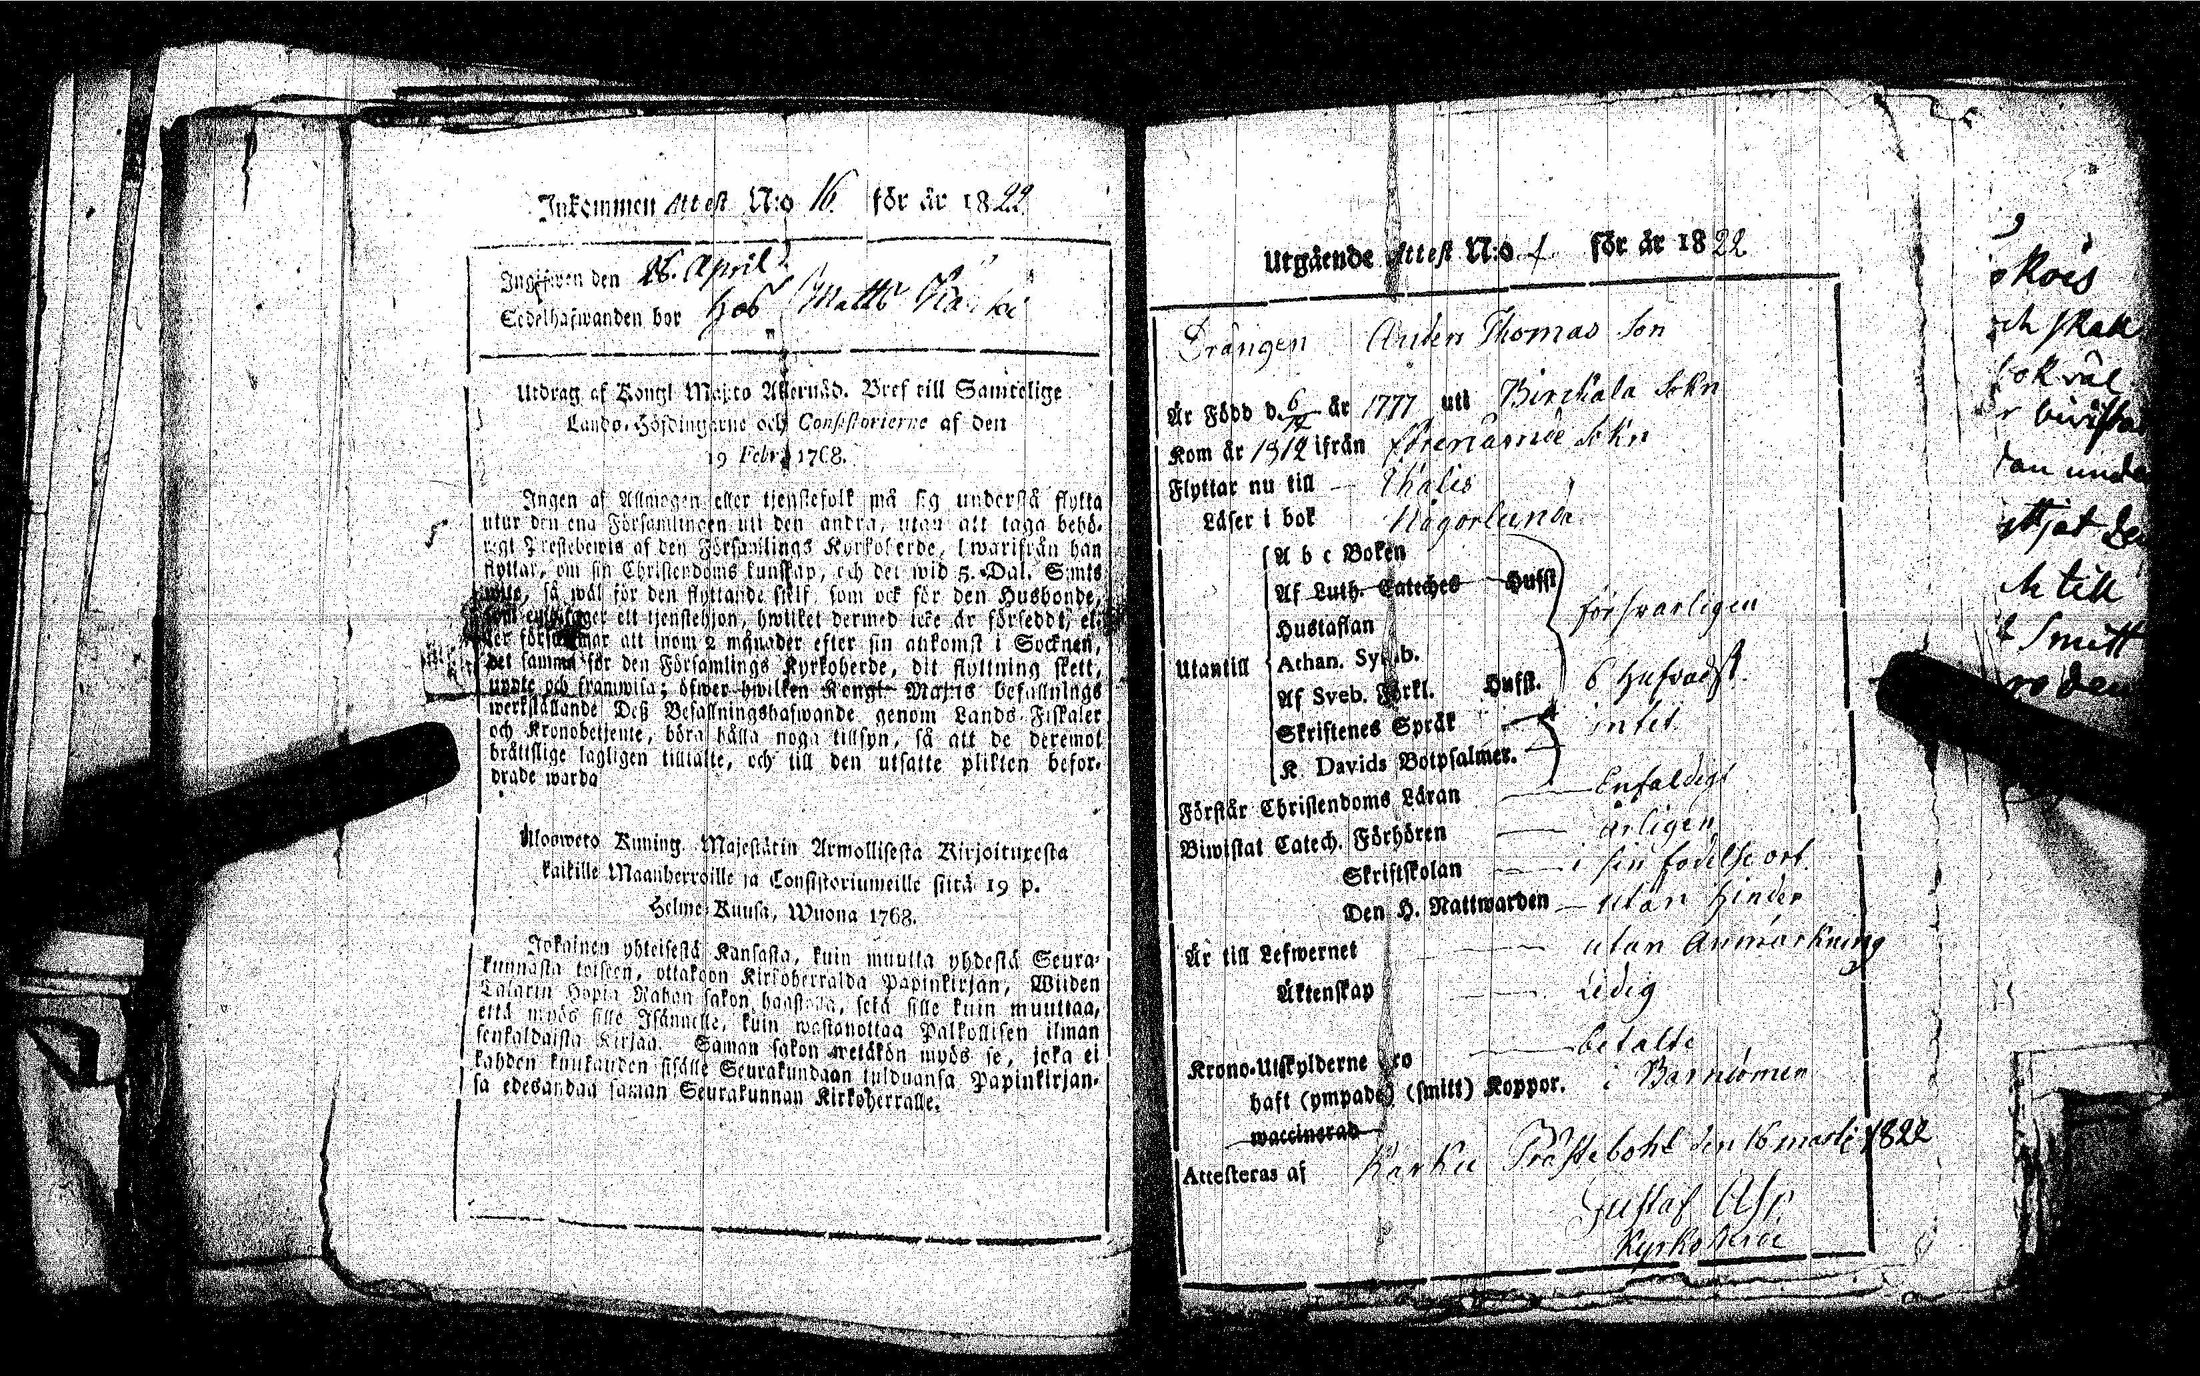 Inkommen Attest N:o 16. för år 1822.
Ingifwen den 26. April
Sedelhafwanden bor hos Matts
Utdrag af Kongl Maj:ts Allernåd. Bref till Samtelige
Lands-Höfdingarne och Consistorierne af den
19 Febr. 1768.
Ingen af Allmogen eller tjenstefolk må sig understå flytta
utur den ena Församlingen uti den andra, utan att taga behö-
rigt Prestebewis af den Församlings Kyrkoherde, hwarifrån han
flyttar, om sin Christendoms kunskap, och det wid 5. Dal. S:mts
wite, så wäl för den flyttande sielf, som ock för den Husbonde,
som emottager ett tjenstehjon, hwilket dermed icke är försedt, el-
ler försummar att inom 2 månader efter sin ankomst i Socknen,
det samma för den Församlings Kyrkoherde, dit flyttning skett,
upte och framwisa; öfwer hwilken Kongl Maj:ts befallnings
werkställande Deß Befallningshafwande genom Lands Fiskaler
och Kronobetjente, böra hålla noga tillsyn, så att de deremot
bråttslige lagligen tilltalte, och till den utsatte plikten befor-
drade warda
Ulosweto Kuning. Majestätin Armollisesta Kirjoituxesta
kaikille Maanherroille ja Consistoriumeille siitä 19 p.
Helme-Kuusa, Wuona 1768.
Jokainen yhteisestä Kansasta, kuin muutta yhdestä Seura-
kunnasta toiseen, ottakoon Kirkoherralda Papinkirjan, Wiiden
Talarin Hopia Rahan sakon haastolla, sekä sille kuin muuttaa,
että myös sille Isännelle, kuin wastanottaa Palkollisen ilman
senkaldaista Kirjaa. Saman sakon wetäkön myös se, joka ei
kahden kuukauden sisälle Seurakundaan tulduansa Papinkirjan-
sa edesandaa saman Seurakunnan Kirkoherralle.
Utgående Attest N:o 1 för år 1822
Drängen Anders Thomas Son
Är Född d. 6/12 år 1777 uti Birckala Sokn
Kom år 1812 ifrån Sokn
Flyttar nu till Thalis
Läser i bok Någorlunda
Utantill
A b c Boken
Af Luth. Cateches Hufst
Hustaflan
Athan. Symb.
försvarligen
Af Sveb. Förkl. Hufst. 6 hufvudst.
Skriftenes Språk intet
K. Davids Botpsalmer.
Förstår Christendoms Läran Enfaldigt
Biwistat Catech. Förhören årligen
Skriftskolan i sin födelse ort
Den H. Nattwarden utan hinder
Är till Lefwernet utan anmärkning
Äktenskap Ledig
Krono-Utskylderne äro betalte
haft (ympade) (smitt) Koppor. i Barndomen
waccinerad
Attesteras af Karku Prästebohl den 16 martii 1822
Gustaf Asp
Kyrkoherde
och skall
till